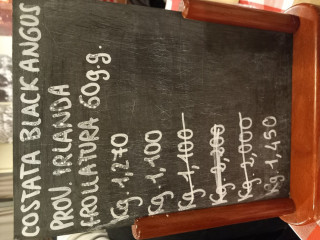 COSTATA BLACK ANGUS
PROV. IRLANDA
FROLLATURA 60g.g.
Kg. 1,270
Kg. 1,100
Kg. 1,100
Kg. 0,800
Kg. 2,000
Kg. 1,450